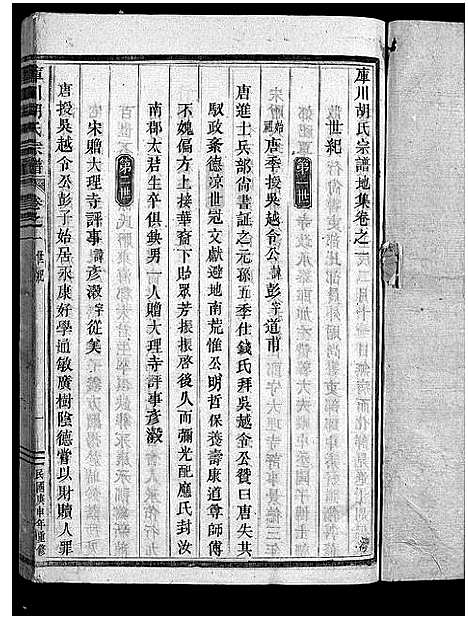 庫川胡氏宗譜地集卷之一
世紀
第一世
始祖唐季授吳越令公諱彭字道甫
唐進士兵部尚書証之元孫五季仕錢氏拜吳越令公贊曰唐失其
馭政紊德凉世冠文獻避地南荒惟公明哲保養壽康道尊師傅
不媿偏方上接華裔下貽眾芳振振啓後久而彌光配應氏封汝
南郡太君生卒俱缺男一贈大理寺評事彥瀔
第二世
宋贈大理寺評事諱彥瀔字從美
唐授吳越令公彭子始居永康好學通敏廣樹陰德嘗以財贖人罪
庫川胡氏宗譜
卷之一
世紀
一
民國庚申年重修